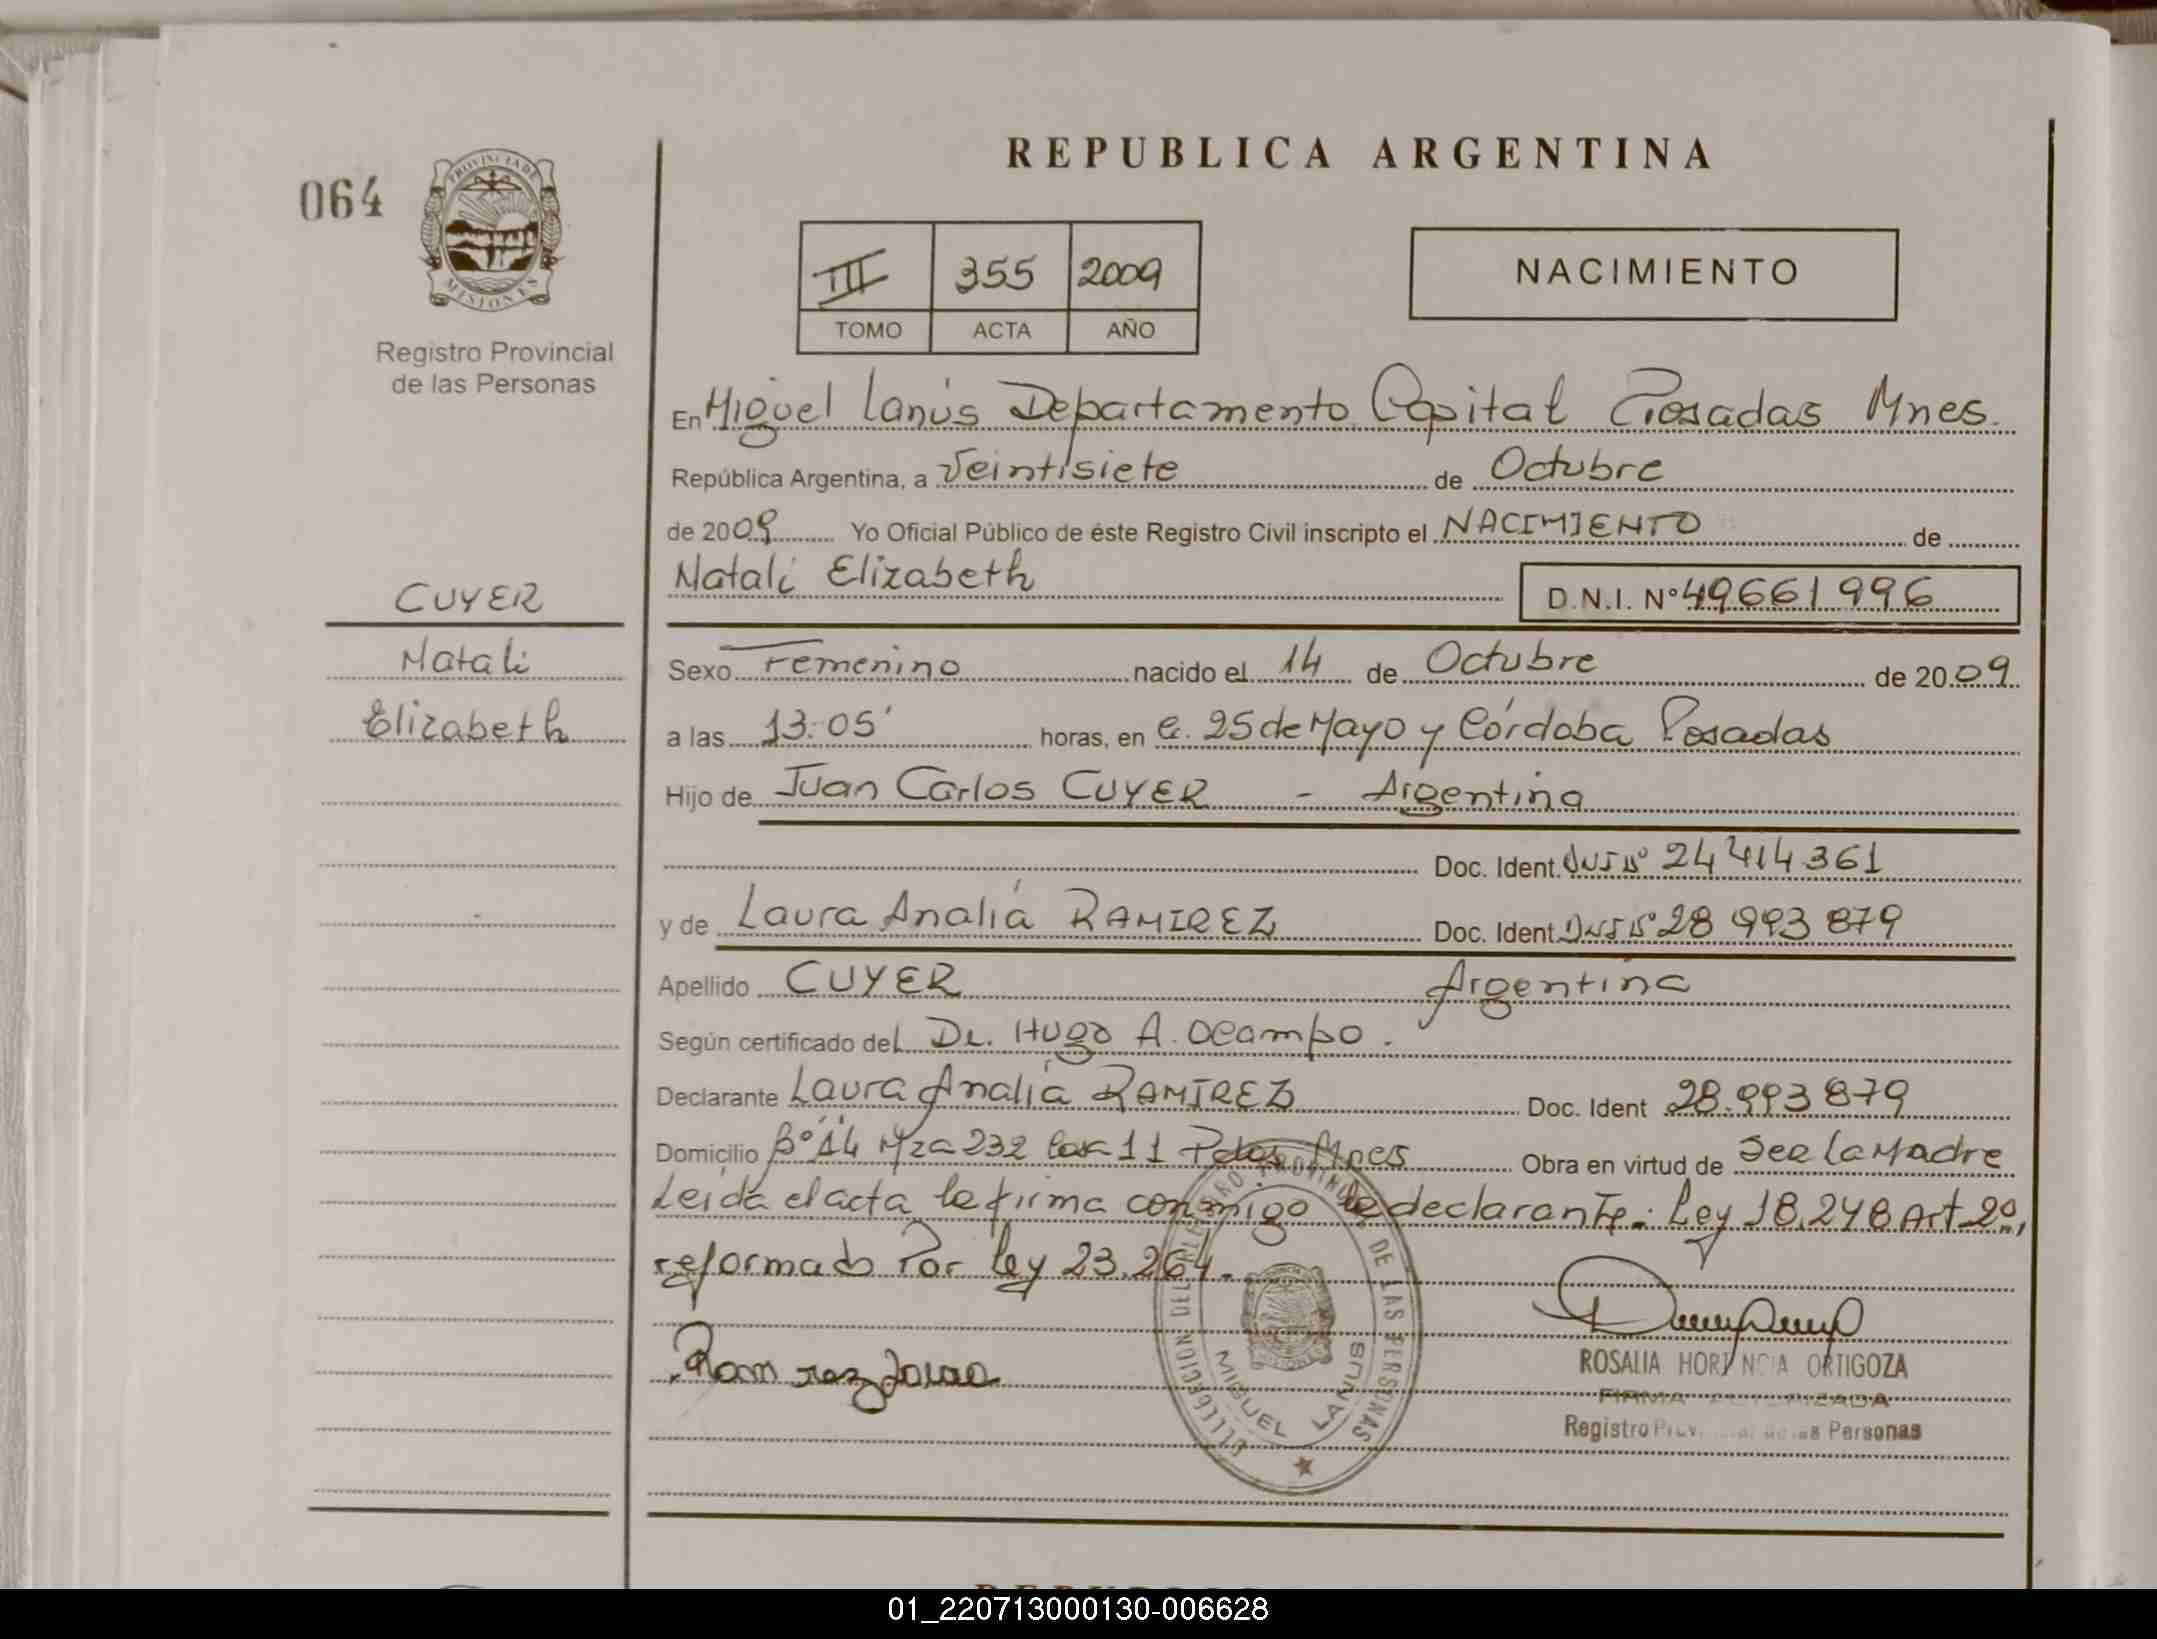 REPUBLICA ARGENTINA
064
PROVINCIA DE
MISIONES
Registro Provincial
de las Personas
III 355 2009
TOMO ACTA AÑO
NACIMIENTO
En Miguel Lanús Departamento Capital Posadas Mnes.
República Argentina, a Veintisiete de Octubre
de 2009 Yo Oficial Público de éste Registro Civil inscripto el NACIMIENTO de
Natali Elizabeth D.N.I. Nº 49661996
CUYER
Natali
Elizabeth
Sexo Femenino nacido el 14 de Octubre de 2009
a las 13:05' horas, en C. 25 de Mayo y Córdoba Posadas
Hijo de Juan Carlos CUYER - Argentina
Doc. Ident. DNI Nº 24 414 361
y de Laura Analía RAMIREZ Doc. Ident. DNI Nº 28 993 879
Apellido CUYER Argentina
Según certificado del Dr. Hugo A. Ocampo.
Declarante Laura Analía RAMIREZ Doc. Ident 28.993 879
Domicilio Bº 14 Mza 232 11 Pdas Mnes Obra en virtud de ser la Madre
Leida el acta la firma conmigo la declarante. Ley 18.248 Art 2º,
reformado Por ley 23.264.
Ramirez Laura
ROSALIA HORTENCIA ORTIGOZA
FIRMA AUTORIZADA
Registro Provincial de las Personas
DELEGACION DEL REGISTRO PROVINCIAL DE LAS PERSONAS
MIGUEL LANUS
01_220713000130-006628